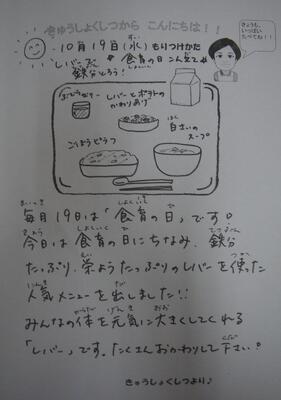 きゅうしょくしつから こんにちは！！
きょうも、
いっぱい
たべてね！！
10月19日(水)もりつけかた
レバーを食べて
鉄分とろう！
食育の日こんだて
ぶどうゼリー
レバーとポテトの
かわりあげ
白さいの
スープ
ごぼうピラフ
毎月19日は「食育の日」です。
今日は食育の日にちなみ、鉄分
たっぷり、栄ようたっぷりのレバーを使った
人気メニューを出しました!!
みんなの体を元気に大きくしてくれる
「レバー」です。たくさんおかわりして下さい!
きゅうしょくしつより♪